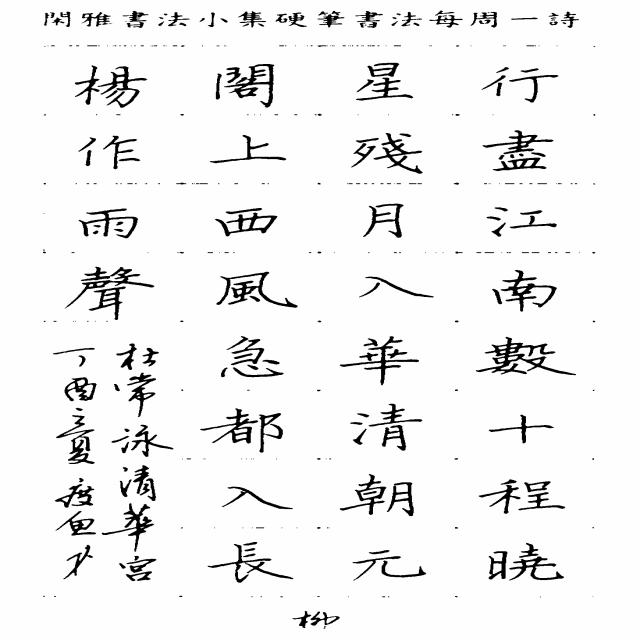 閑雅書法小集硬筆書法每周一詩
行盡江南數十程曉
星殘月入華清朝元
閣上西風急都入長
楊作雨聲
杜常詠清華宮
丁酉夏
柳